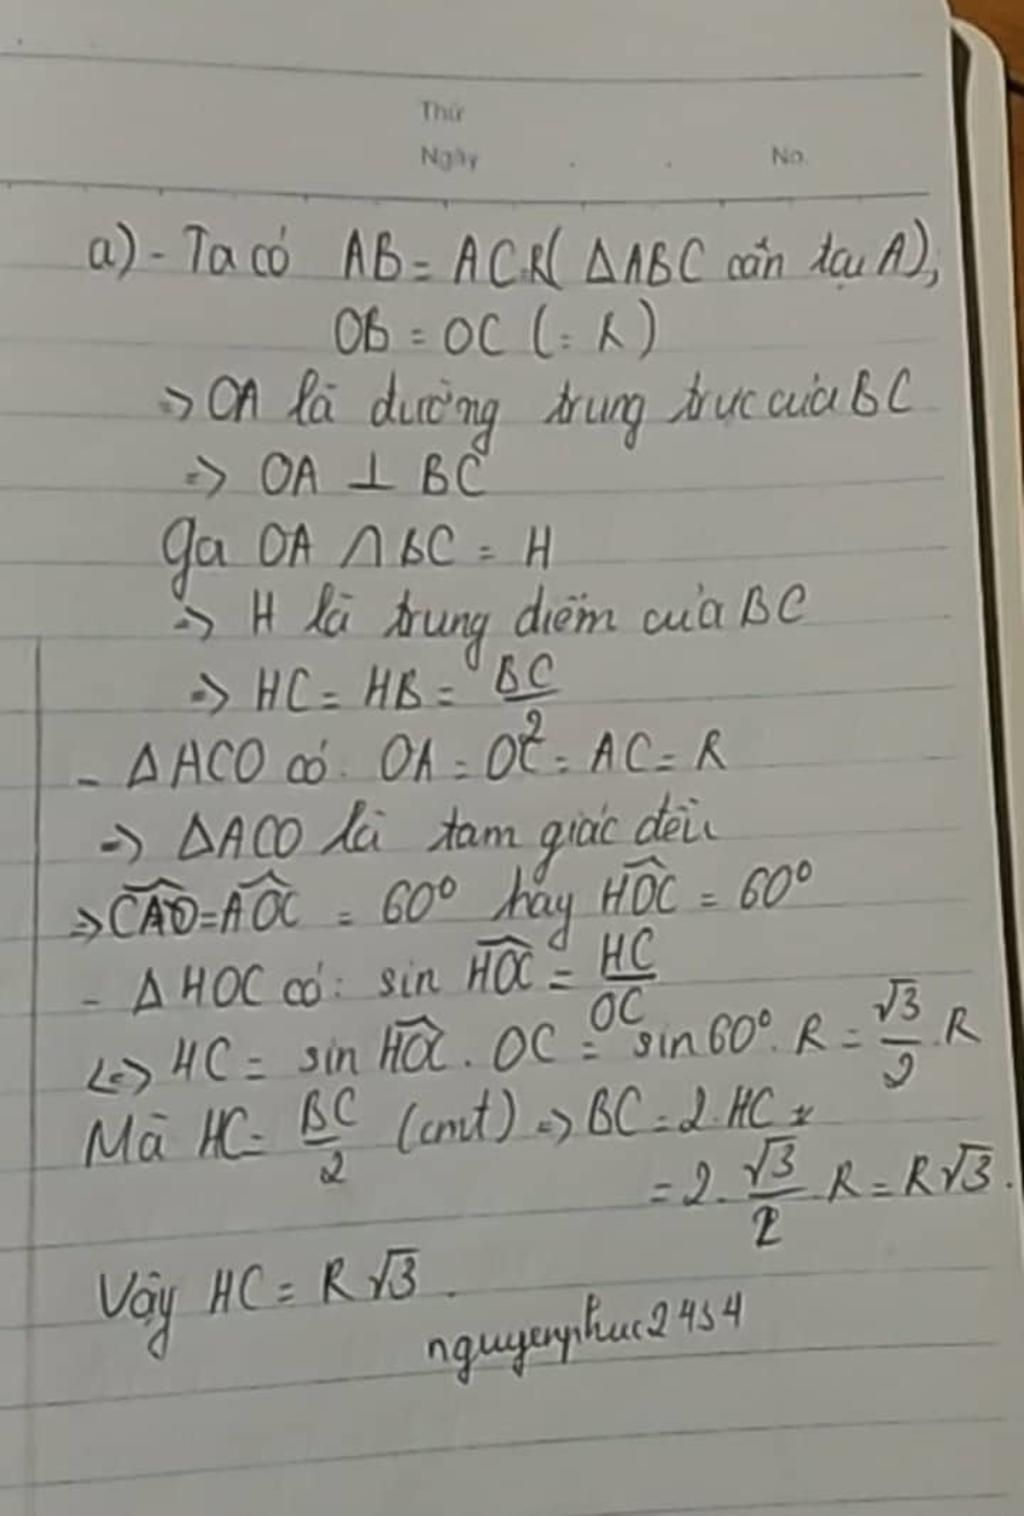 Thứ
Ngày . . No.
a) - Ta có AB = AC = R ( ΔABC cân tại A),
OB = OC (= R)
=> OA là đường trung trực của BC
=> OA ⊥ BC
Gọi OA ∩ BC = H
=> H là trung điểm của BC
=> HC = HB = BC/2
- ΔACO có: OA = OC = AC = R
=> ΔACO là tam giác đều
=> CAO = AOC = 60° hay HOC = 60°
- ΔHOC có: sin HOC = HC/OC
<=> HC = sin HOC . OC = sin 60° . R = √3/2 . R
Mà HC = BC/2 (cmt) => BC = 2.HC
= 2. √3/2 R = R√3.
Vậy HC = R√3.
nguyenphuc2454